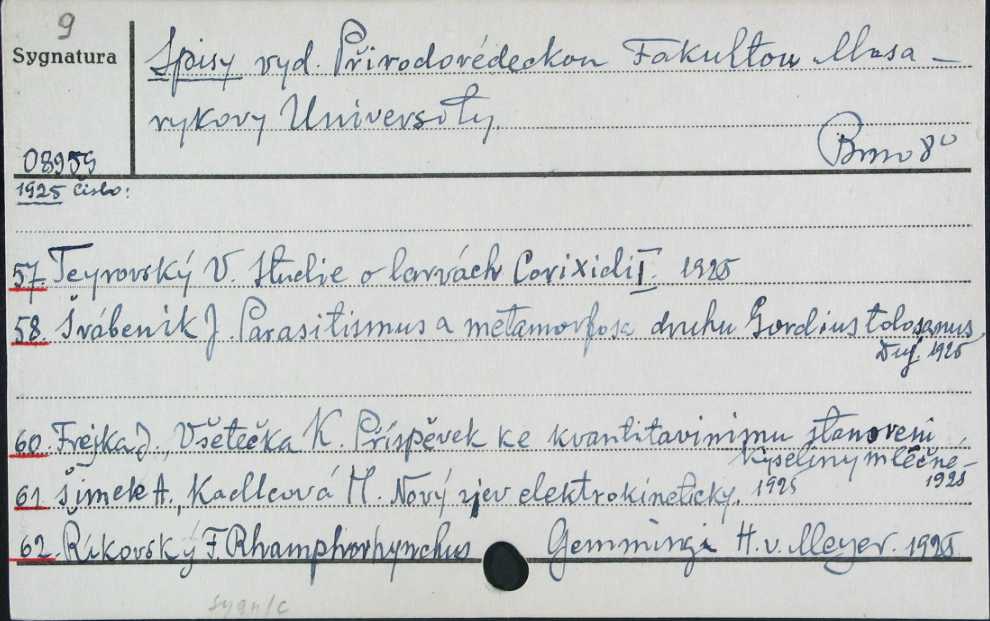 9
Sygnatura
Spisy vyd. Přirodovédeckou Fakultou Masa-
rykovy University.
08959
Brno 8°
1925 číslo:
57. Teyrovský V. Studie o larvách Corixidií I. 1925
58. Švábenik J. Parasitismus a metamorfosa druhu Gordius tolosanus
Duj. 1925
60. Frejka J., Všetečka K. Příspěvek ke kvantitavinimu stanoveni
kyseliny mléčné - 1925
61 Šimek A., Kadlcová M. Nový zjev elektrokinetický. 1925
62. Říkovský F. Rhamphorhynchus Gemmingi H. v. Meyer. 1925
sygn/c